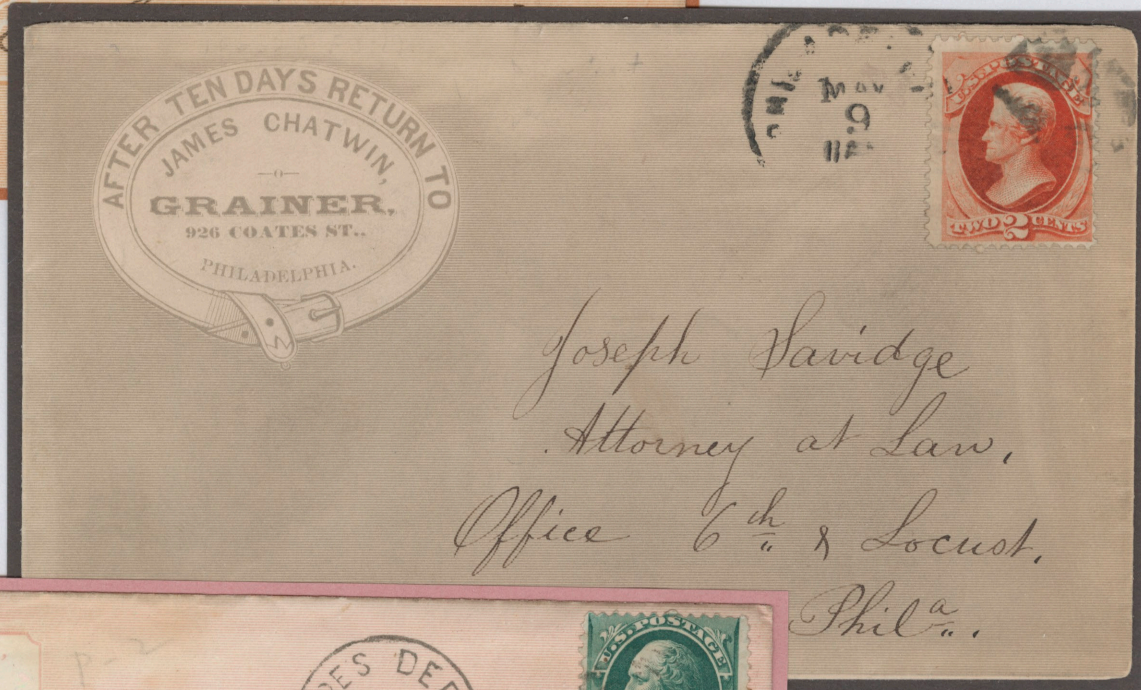 AFTER TEN DAYS RETURN TO
JAMES CHATWIN,
GRAINER,
926 COATES ST.,
PHILADELPHIA.
MAY
9
U.S. POSTAGE
TWO 2 CENTS
Joseph Savidge
Attorney at Law,
Office 6th & Locust,
Phila.
U.S. POSTAGE